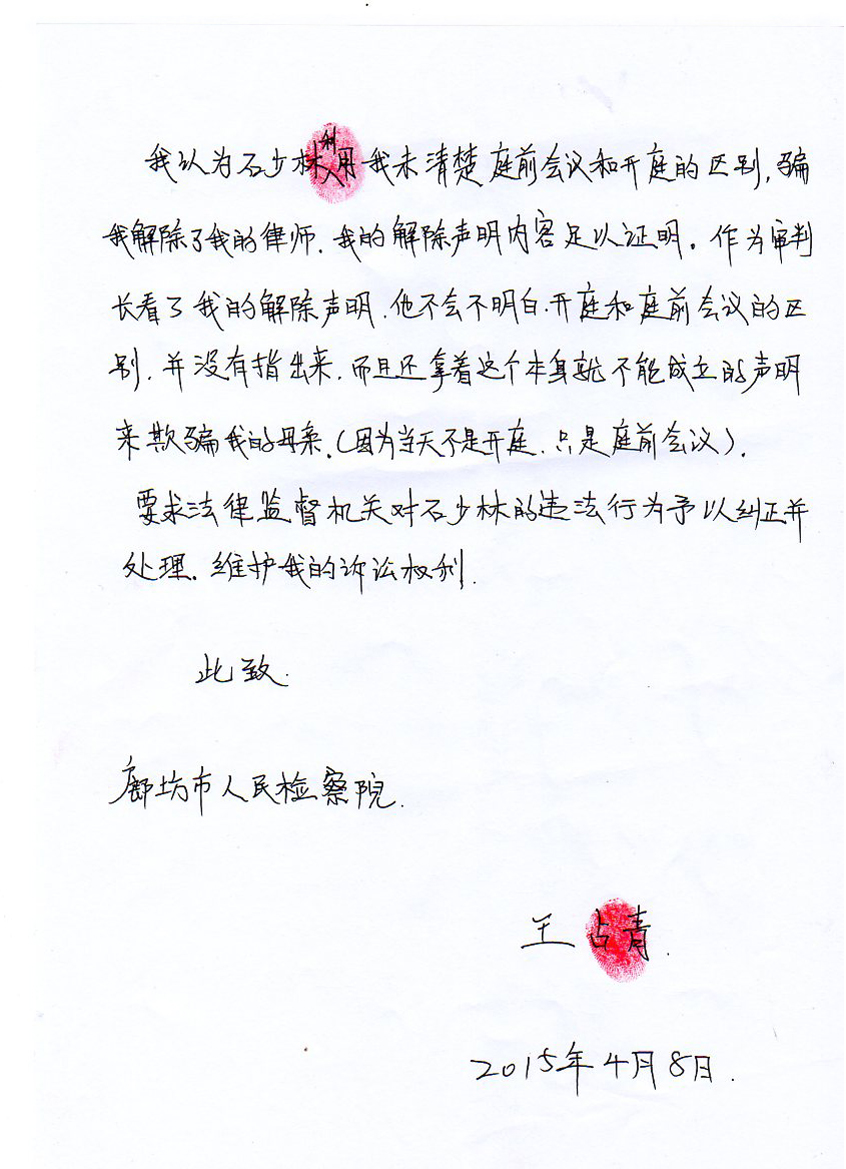 我认为石少林利用我未清楚庭前会议和开庭的区别，骗
我解除了我的律师．我的解除声明内容足以证明。作为审判
长看了我的解除声明．他不会不明白．开庭和庭前会议的区
别．并没有指出来．而且还拿着这个本身就不能成立的声明
来欺骗我的母亲．（因为当天不是开庭．只是庭前会议）．
要求法律监督机关对石少林的违法行为予以纠正并
处理．维护我的诉讼权利．
此致．
廊坊市人民检察院．
王占青．
2015年4月8日．